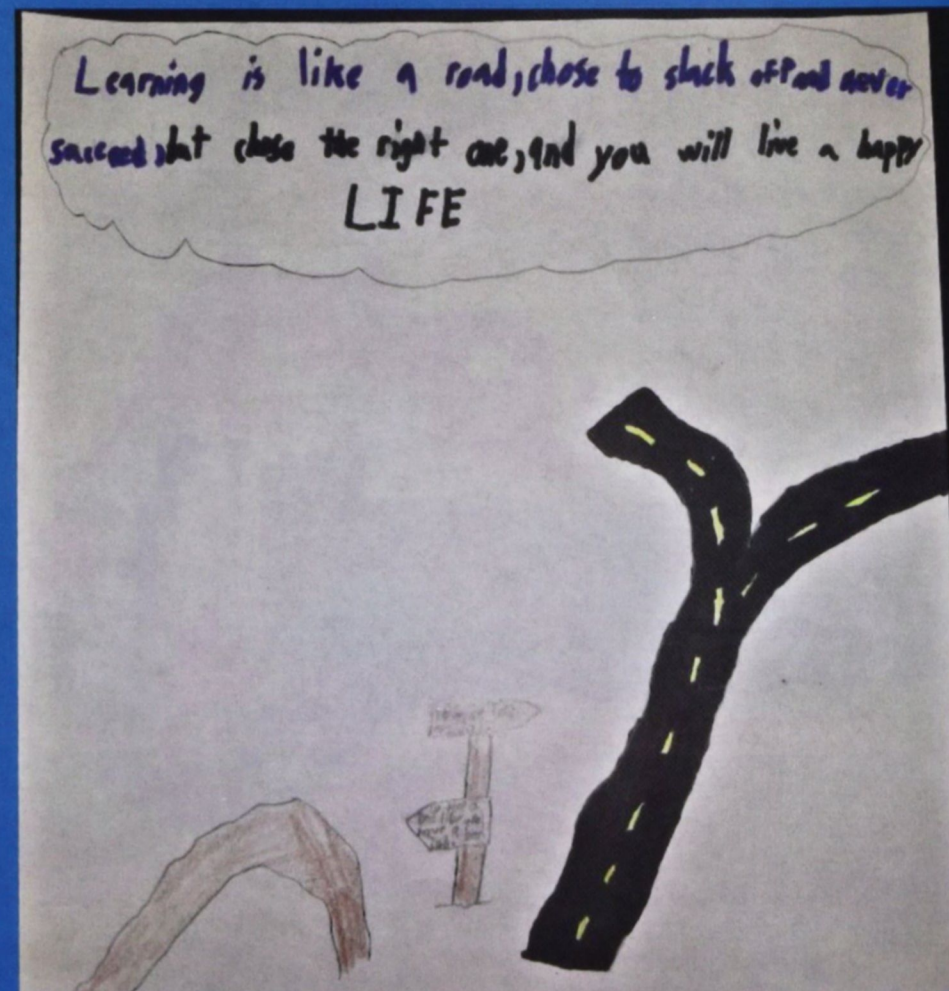 Learning is like a road, chose to slack off and never
succeed, but chose the right one, and you will live a happy
LIFE